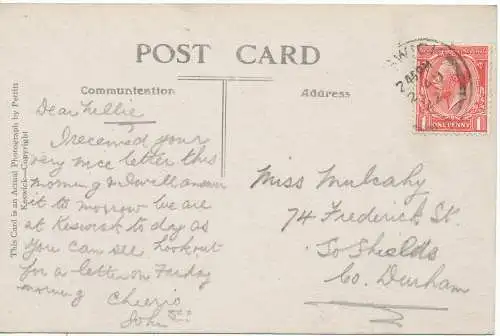 POST CARD
Communication
Address
This Card is an Actual Photograph by Pettitt
Keswick—Copyright
Dear Nellie
I received your
very nice letter this
morning & I will answer
it to morrow we are
at Keswick to day as
you can see. Look out
for a letter on Friday
morning
Cheerio
John
Miss Mulcahy
74 Frederick St.
So Shields
Co. Durham
WICK
1 ONE PENNY 1